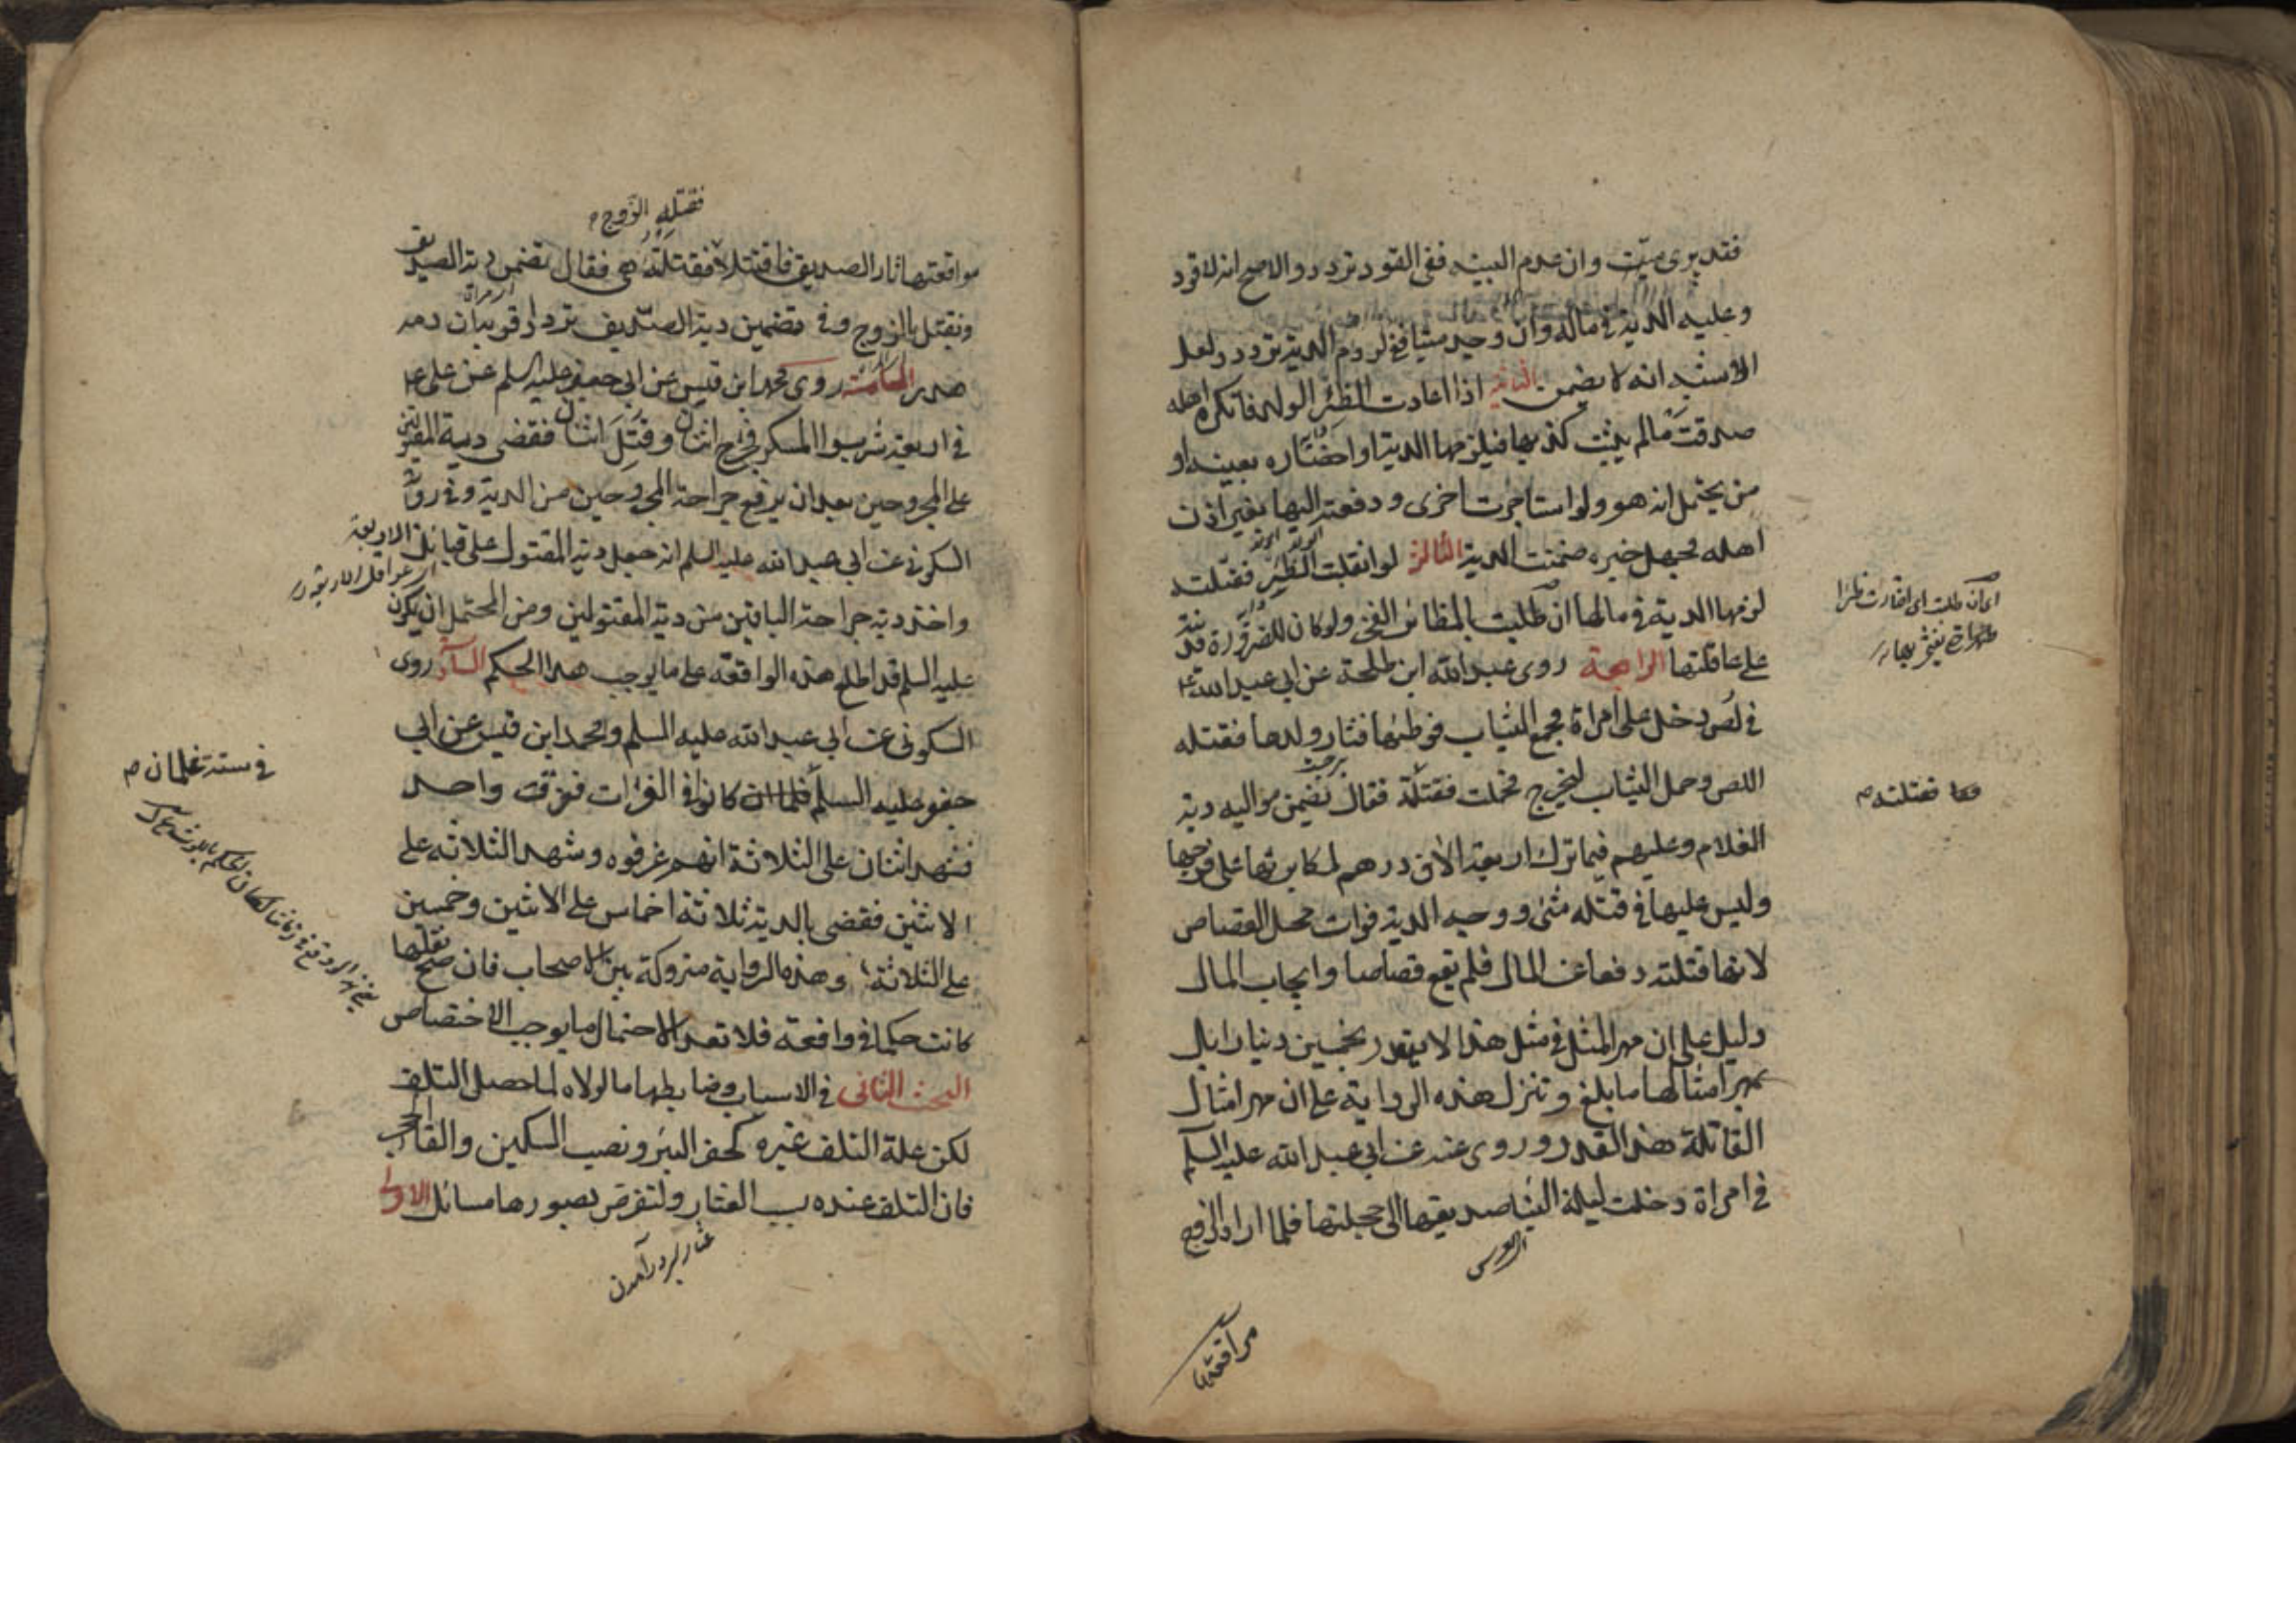 فقد برى ميّت وان عدم البينه ففى القود تردد والاصح انه لا قود
وعليه الدية فى ماله وان وجد ميتا ففى لزوم الدية تردد ولعل
الاشبه انه لا يضمن الثانية اذا اعادت الظئر الولد فانكره اهله
صدقت ما لم يثبت كذبها فيلزمها الدية او احضاره بعينه او
من يحتمل انه هو ولو استاجرت اخرى ودفعته اليها بغير اذن
اهله فجهل خبره ضمنت الدية الثالثة لو انقلبت الظئر فقتلته
لزمها الدية فى مالها ان طلبت بالمظائرة الفخر ولو كان للضرورة فديته
على عاقلتها الرابعة روى عبد الله ابن طلحة عن ابى عبد الله ع
فى لص دخل على امراة فجمع الثياب فوطئها فثار ولدها فقتله
اللص وحمل الثياب ليخرج فحملت فقتلته فقال يضمن مواليه دية
الغلام وعليهم فيما ترك اربعة الاف درهم لمكابرتها على فرجها
وليس عليها فى قتله شئ ووجه الدية فوات محل القصاص
لانها قتلته دفعا عن المال فلم يقع قصاصا وايجاب المال
دليل على ان مهر المثل فى مثل هذا لا يتقدر بخمسين دينارا بل
بمهر امثالها ما بلغ وتنزل هذه الرواية على ان مهر امثال
القاتلة هذا القدر وروى عنه عن ابى عبد الله عليه السلم
فى امراة دخلت ليلة البنا صديقها الى حجلتها فلما اراد الزوج
مواقعتها
فقتله الزوج
مواقعتها ثار الصديق فاقتتلا فقتلته هى فقال تضمن دية الصديق
وتقتل بالزوج وفى تضمين دية الصديق تردد اقربه ان دمه
هدر الخامسة روى محمد ابن قيس عن ابى جعفر عليه السلم عن على ع
فى اربعة شربوا المسكر فجرح اثنان وقتل اثنان فقضى دية المقتولين
على المجروحين بعد ان يرفع جراحة المجروحين من الدية وفى رواية
السكونى عن ابى عبد الله عليه السلم انه جعل دية المقتول على قبائل الاربعة
واخذ دية جراحة الباقين من دية المقتولين ومن المحتمل ان يكون
عليه السلم قد اطلع هذه الواقعة على ما يوجب هذا الحكم السادسة روى
السكونى عن ابى عبد الله عليه السلم ومحمد ابن قيس عن ابى
جعفر عليه السلم كانوا فى الفرات فغرقت واحد
فى ستة غلمان
فشهد اثنان على الثلاثة انهم غرقوه وشهد الثلاثه على
الاثنين فقضى بالدية ثلاثة اخماس على الاثنين وخمسين
على الثلاثة وهذه الرواية متروكة بين الاصحاب فان صح نقلها
كانت حكما فى واقعة فلا تعد الاحتمال ما يوجب الاختصاص
البحث الثانى فى الاسباب وضابطها ما لولاه لما حصل التلف
لكن علة التلف غيره كحفر البئر ونصب السكين والقا الحجر
فان التلف عنده بسبب العثار ولنفرض بصورها مسائل الاولى
عثار بسر درآمدن